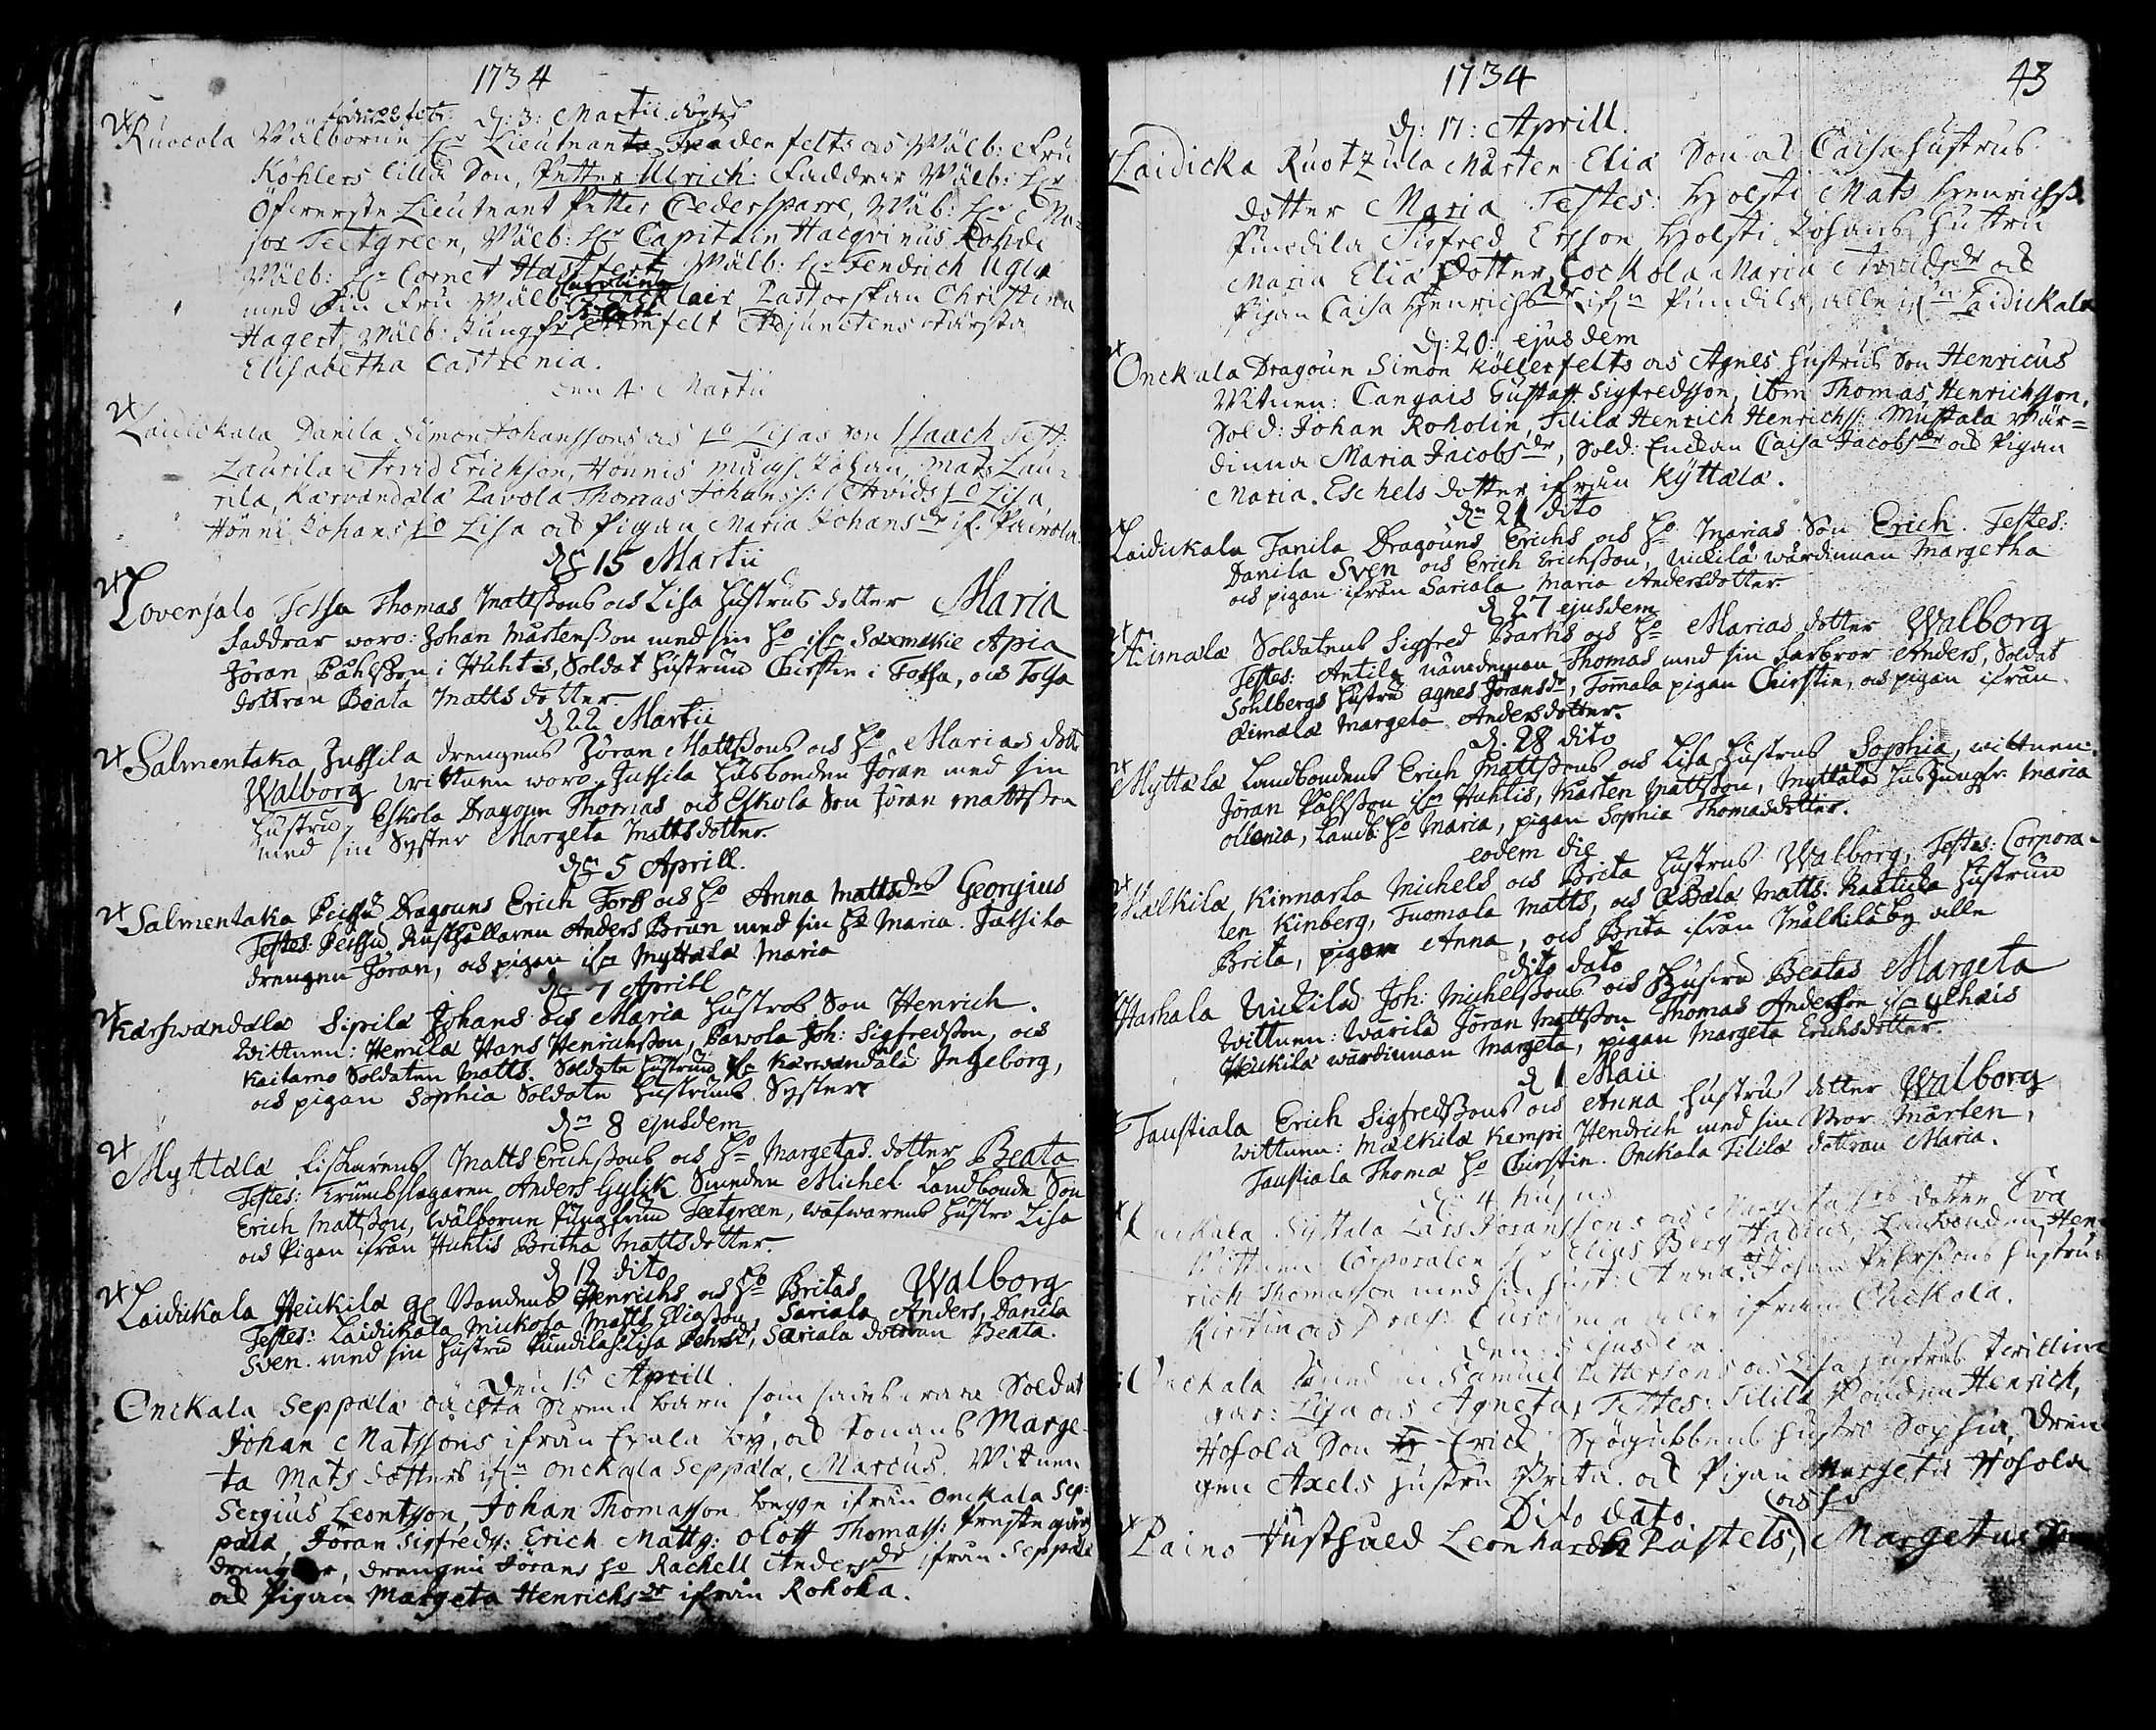 1734
d: 3: Martii döptes
Ruocola Wälborne Hr Lieutnants Fradenfelts och Wälb: Fru
Köhlers lilla Son, Petter Ulrich: Faddrar Wälb: Hr
Öfwerste Lieutnant Petter Cedersparre, Wälb: Hr Ma-
jor Teetgreen, Wälb: Hr Capitain Rohde
Wälb: Hr Cornet Hastfert, Wälb: Hr Fendrich Ugla
med Sin Fru Wälb: Sincklair, Pastorskan Christina
Hagert, Wälb: Jungfr Armfelt Adjunctens Kärsta
Elisabetha Castrenia.
den 4 Martii
Laidickala Danila Simon Johanssons och ho Lisas son Isaach Test:
Laurila Arvid Erichson, Hönnis Johan, Mats Lau-
rila, Karvandala Pavola Thomas Johanss: Arvids ho Lisa
Hönni Johans ho Lisa och Pigan Maria Johansdr if. Pavola.
dn 15 Martii
Lovensalo Tolsa Thomas Mattssons och Lisa hustrus dotter Maria
Faddrar woro: Johan Mårtensson med sin ho ifn Saxmekie Apia
Jöran Påhlsson i Huhtis, Soldat hustrun Chirstin i Tolsa, och Tolsa
dottran Beata Mattsdotter.
d 22 Martii
Salmentaka Jussila drengens Jöran Mattssons och ho Marias dott:
Walborg wittnen woro, Jussila husbonden Jöran med sin
hustru, Eskola Dragoun Thomas och Eskola Son Jöran Mattsson
med sin Syster Margeta Mattsdotter.
dn 5 Aprill.
Salmentaka Peissu Dragouns Erich Forss och ho Anna Mattsdrs Georgius
Testes: Peissu Rusthållaren Anders Brun med sin ho Maria. Jussila
drengen Jöran, och pigan ifn Myttala Maria
dn 7 Aprill
Karswandala Sipila Johans och Maria hustrus Son Henrich.
Wittnen: Hemila Hans Henrichsson, Pawola Joh: Sigfredsson, och
Kaitamo Soldaten Matts. Soldate hustrun ifn Karwandala Ingeborg,
och pigan Sophia Soldate hustruns Syster
dn 8 ejusdem
Myttala Fiskarens Matts Erichssons och ho Margetas dotter Beata
Testes: Trumbslagaren Anders Gylik Smeden Michel Landbonde Son
Erich Mattsson, Wälborne Jungfrun Teetgreen, wäfwarens hustro Lisa
och Pigan ifrån Huhtis Britha Mattsdotter.
d 12 dito
Laidickala Heickila Bondens Henrichs och ho Britas Walborg
Testes: Laidickala Mickola Matts Eliasson, Sariala Anders, Danila
Sven med sin hustru Pundila Lisa Pehrsdr, Sariala dottran Beata.
Den 15 Aprill
Onckala Seppälä oächta Barn som Soldat
Johan Matssons ifrån by, och Konans Marge-
ta Mats dotters ifn Onckala Seppälä, Marcus. Witnen
Sergius Leontsson, Johan Thomasson begge ifrån Onckala Sep:
pälä, Jöran Sigfreds: Erich Matts: Oloff Thomass: Prestegårds
drengar, drengen Jörans ho Rachell Andersdr ifrån Seppälä
och Pigan Margeta Henrichsdr ifrån Rohoka.
1734
43
d: 17: Aprill.
Laidicka Ruotzula Mårten Elia Son och Caisa hustrus
dotter Maria Testes: Holsti Mats Henrichss
Pundila Sigfred Ersson, Holsti Johans hustru
Maria Elia Dotter, Cockola Maria Arvidsdr och
Pigan Caisa Henrichsdr ifn Pundila, alle ifn Laidickala
d: 20: ejusdem
Onckala Dragoun Simon Köllerfelts och Agnes hustrus Son Henricus
Witnen: Cangais Gustaff Sigfredsson, ibm Thomas Henrichsson,
Sold: Johan Roholin, Tilila Henrich Henrichss: Mustala Wär-
dinna Maria Jacobsdr, Sold: Enckan Caisa Jacobsdr och Pigan
Maria Eschels dotter ifrån Kyttälä.
dn 21 dito
Laidickala Tanila Dragouns Erichs och ho Marias Son Erich. Testes:
Danila Sven och Erich Erichsson, Nickilä wärdinnan Margetha
och pigan ifrån Sariala Maria Andersdotter
d 27 ejusdem
Aimala Soldatens Sigfred Barks och ho Marias dotter Walborg
Testes: Antila nämdeman Thomas med sin farbror Anders, Soldat
Sohlbergs hustru Agnes Jöransdr, Tommala pigan Chirstin, och pigan ifrån
Aimala Margeta Andersdotter.
d. 28 dito
Myttala Landbondens Erich Mattssons och Lisa hustrus Sophia, wittnen:
Jöran Påhlsson ifn Huhtis, Mårten Mattsson, Myttala Jungfr: Maria
Ollenia, Landb: ho Maria, pigan Sophia Thomasdotter.
eodem die
Mälkilä Kinnarla Michels och Brita hustrus Walborg, Testes: Corpora-
len Kinberg, Tuomala Matts, och Matts. hustrun
Brita, pigan Anna, och Brita ifrån Mälkilä by alle
dito dato
Harhala Nickila Joh: Michelssons och hustru Beatas Margeta
Wittnen: Warila Jöran Mattsson Thomas Andersson ifn Ylhäis
Heickila wärdinnan Margeta, pigan Margeta Erichsdotter.
d 1 Maii
Taustiala Erich Sigfredssons och Anna hustrus dotter Walborg
Wittnen: Mälkilä Kempi Hendrich med sin Bror Mårten,
Taustiala Thoma ho Chirstin. Onckala Tilila dottran Maria.
d: 4 hujus
Onckala Kyttala Lars Göranssons och Margeta hos dotter Eva
Wittnen Corporalen Hr Elias Berg Hen-
rich Thomasson med sin hust: Anna. Johan Pehrssons hustru
Kirstin och Drag: alle ifrån Onckala.
Den 5 ejusdem.
Onckala Smeden Samuel Pettersons och Lisa hustrus twillin-
gar: Lisa och Agneta, Testes: Tilila Bonden Henrich,
Hofola Son Erick, hustru Sophia, Dren
gen Axels hustru Brita. och Pigan Margeta Hofola
Dito dato och ho
Paino Husthued Leonhardh Pastels, Margetas